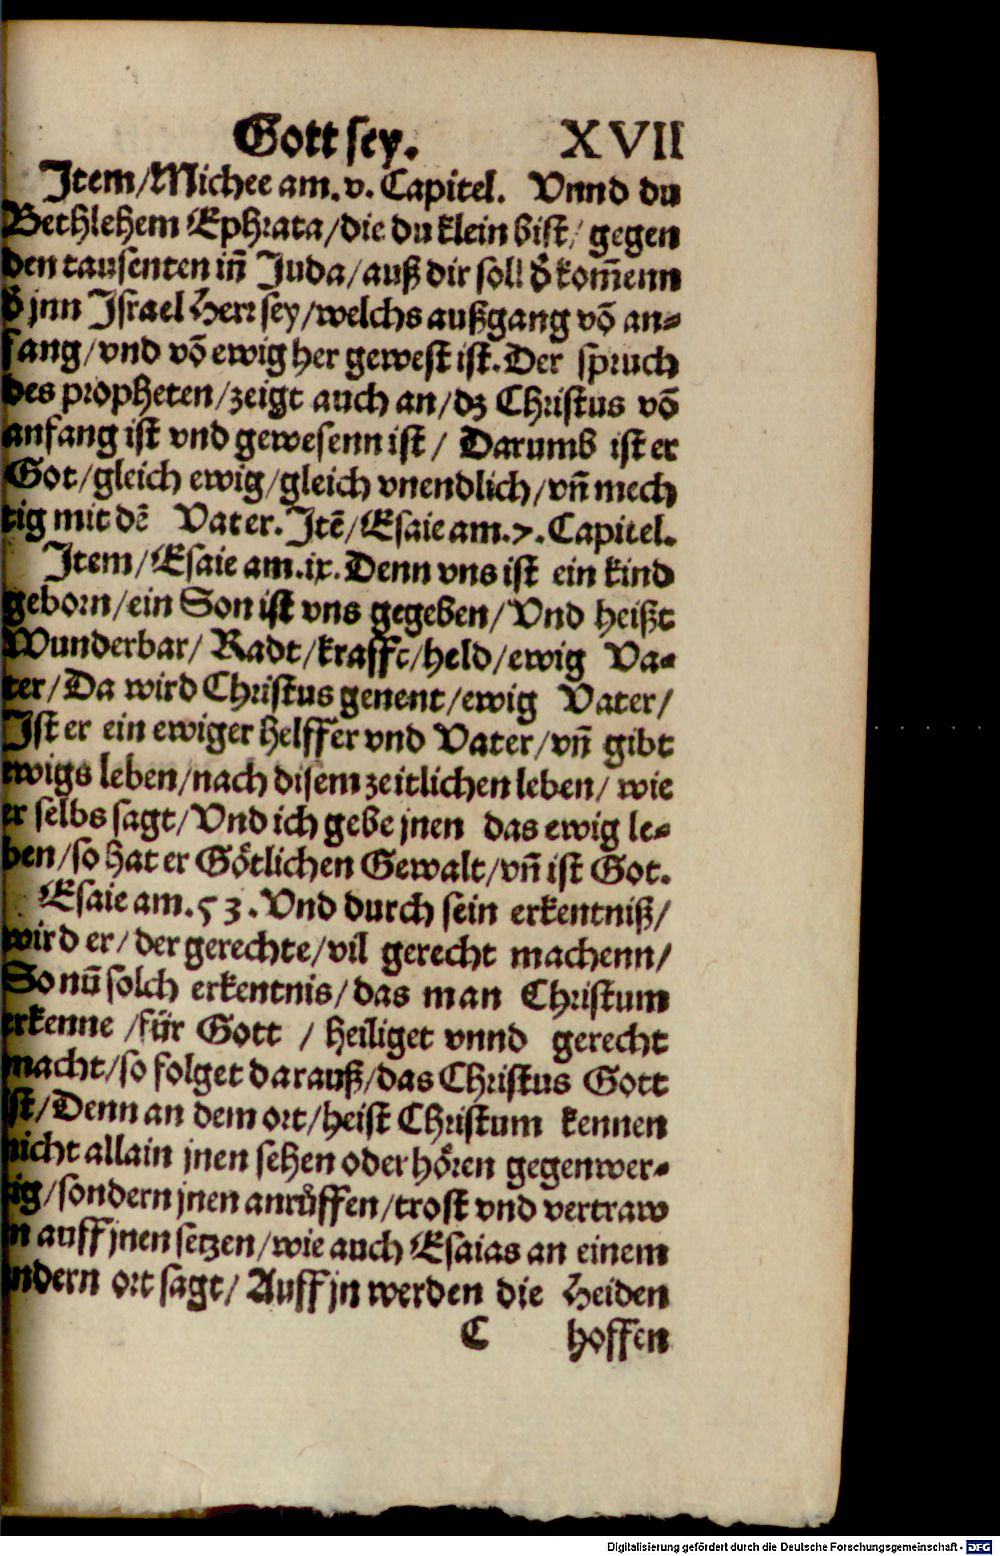 Gott sey. XVII
Item/Michee am. v. Capitel. Vnnd du
Bethlehem Ephrata/die du klein bist/ gegen
den tausenten in̄ Juda/auß dir soll d̕ kom̄enn
d̕ jnn Israel Herr sey/welchs außgang vō an⸗
fang/vnd vō ewig her gewest ist. Der spruch
des propheten/zeigt auch an/dz Christus vō
anfang ist vnd gewesenn ist/ Darumb ist er
Got/gleich ewig/gleich vnendlich/vn̄ mech
tig mit dē Vater. Itē/Esaie am. 7. Capitel.
Item/Esaie am. ix. Denn vns ist ein kind
geborn/ein Son ist vns gegeben/Vnd heißt
Wunderbar/ Radt/krafft/held/ewig Va⸗
ter/Da wird Christus genent/ewig Vater/
Ist er ein ewiger helffer vnd Vater/vn̄ gibt
ewigs leben/nach disem zeitlichen leben/ wie
er selbs sagt/Vnd ich gebe jnen das ewig le⸗
ben/so hat er Götlichen Gewalt/vn̄ ist Got.
Esaie am. 53. Vnd durch sein erkentniß/
wird er/ der gerechte/vil gerecht machenn/
So nū solch erkentnis/das man Christum
erkenne /für Gott / heiliget vnnd gerecht
macht/so folget darauß/das Christus Gott
ist/Denn an dem ort/heist Christum kennen
nicht allain jnen sehen oder hören gegenwer⸗
tig/sondern jnen anrůffen/trost vnd vertraw
n auff jnen setzen/wie auch Esaias an einem
andern ort sagt/ Auff jn werden die Heiden
C hoffen
Digitalisierung gefördert durch die Deutsche Forschungsgemeinschaft - DFG